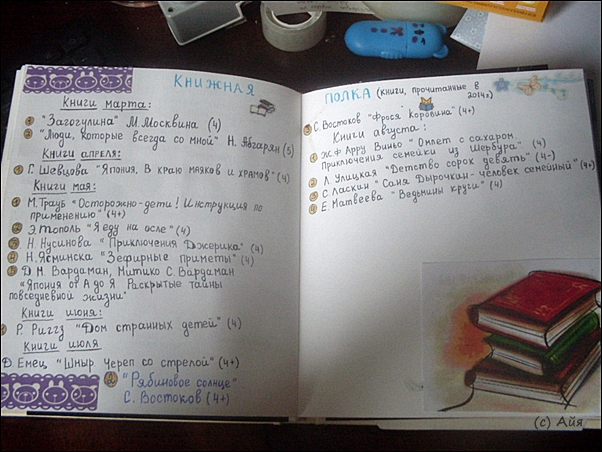 Книжная
Книги марта:
1 "Загогулина" М. Москвина (4)
2 "Люди, которые всегда со мной" Н. Абгарян (5)
Книги апреля:
1 Г. Шевцова "Япония. В краю маяков и храмов" (4)
Книги мая:
1 М. Трауб "Осторожно-дети! Инструкция по
применению" (4+)
2 Э. Тополь "Я еду на осле" (4)
3 Н. Нусинова "Приключения Джерика" (4)
4 Н. Ясминска "Зефирные приметы" (4)
5 Д. М. Вардаман, Митико С. Вардаман
"Япония от А до Я. Раскрытые тайны
повседневной жизни"
Книги июня:
1 Р. Риггз "Дом странных детей" (4)
Книги июля
Д. Емец "Шныр Череп со стрелой" (4+)
2 "Рябиновое солнце"
С. Востоков (4+)
полка (книги, прочитанные в
2014г)
3 С. Востоков "Фрося Коровина" (4+)
Книги августа:
1 Ж.Ф. Арру-Виньо "Омлет с сахаром.
приключения семейки из Шербура" (4)
2 Л. Улицкая "Детство сорок девять" (4-)
3 С. Ласкин "Саня Дырочкин - человек семейный" (4+)
4 Е. Матвеева "Ведьмины круги" (4)
(c) Айя